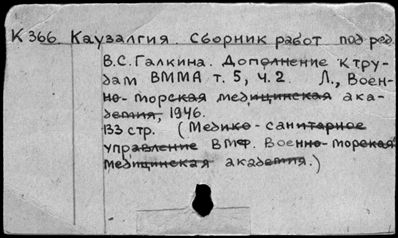 К 366. Каузалгия. Сборник работ под ред.
В.С. Галкина. Дополнение к тру-
дам ВММА т. 5, ч. 2. Л., Воен-
но-морская медицинская ака-
демия, 1946.
133 стр. (Медико-санитарное
управление ВМФ. Военно-морская
медицинская академия.)